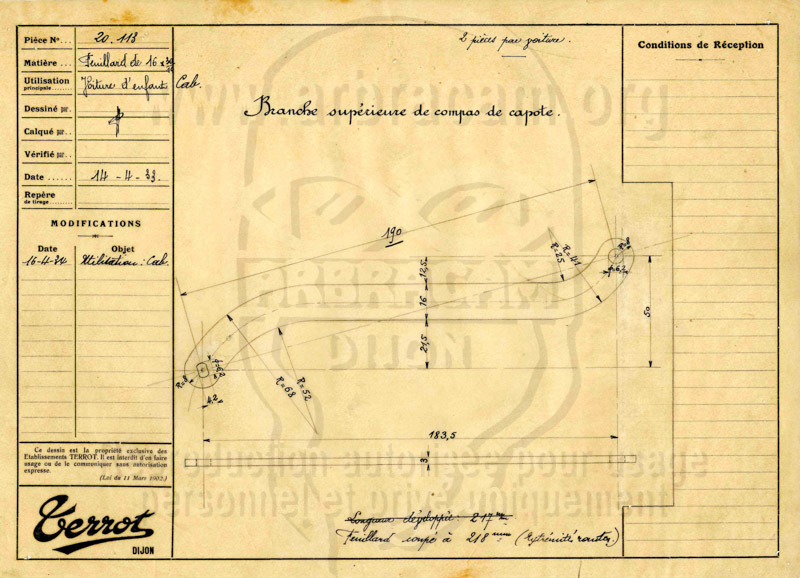 Pièce No... 20.113
Matière... Feuillard de 16 x
Utilisation principale... Voiture d'enfant Cab.
Dessiné par.
Calqué par..
Vérifié par..
Date ...... 14-4-33
Repère de tirage
MODIFICATIONS
Date Objet
16-4-34 Utilisation: Cab.
Ce dessin est la propriété exclusive des
Etablissements TERROT. Il est interdit d'en faire
usage ou de le communiquer sans autorisation
expresse.
(Loi du 11 Mars 1902.)
Terrot
DIJON
2 pièces par voiture.
Branche supérieure de compas de capote.
190
12,5
16
21,5
R=25
R=41
R=8
φ=6,2
50
R=8
φ=6,2
4,2
R=52
R=68
183,5
3
Longueur développée: 217 m/m
Feuillard coupé à 218 mm (Extrémités rondes)
Conditions de Réception
www.arbracam.org
ARBRACAM
DIJON
reproduction annonsée pour usage
personnel et privé uniquement